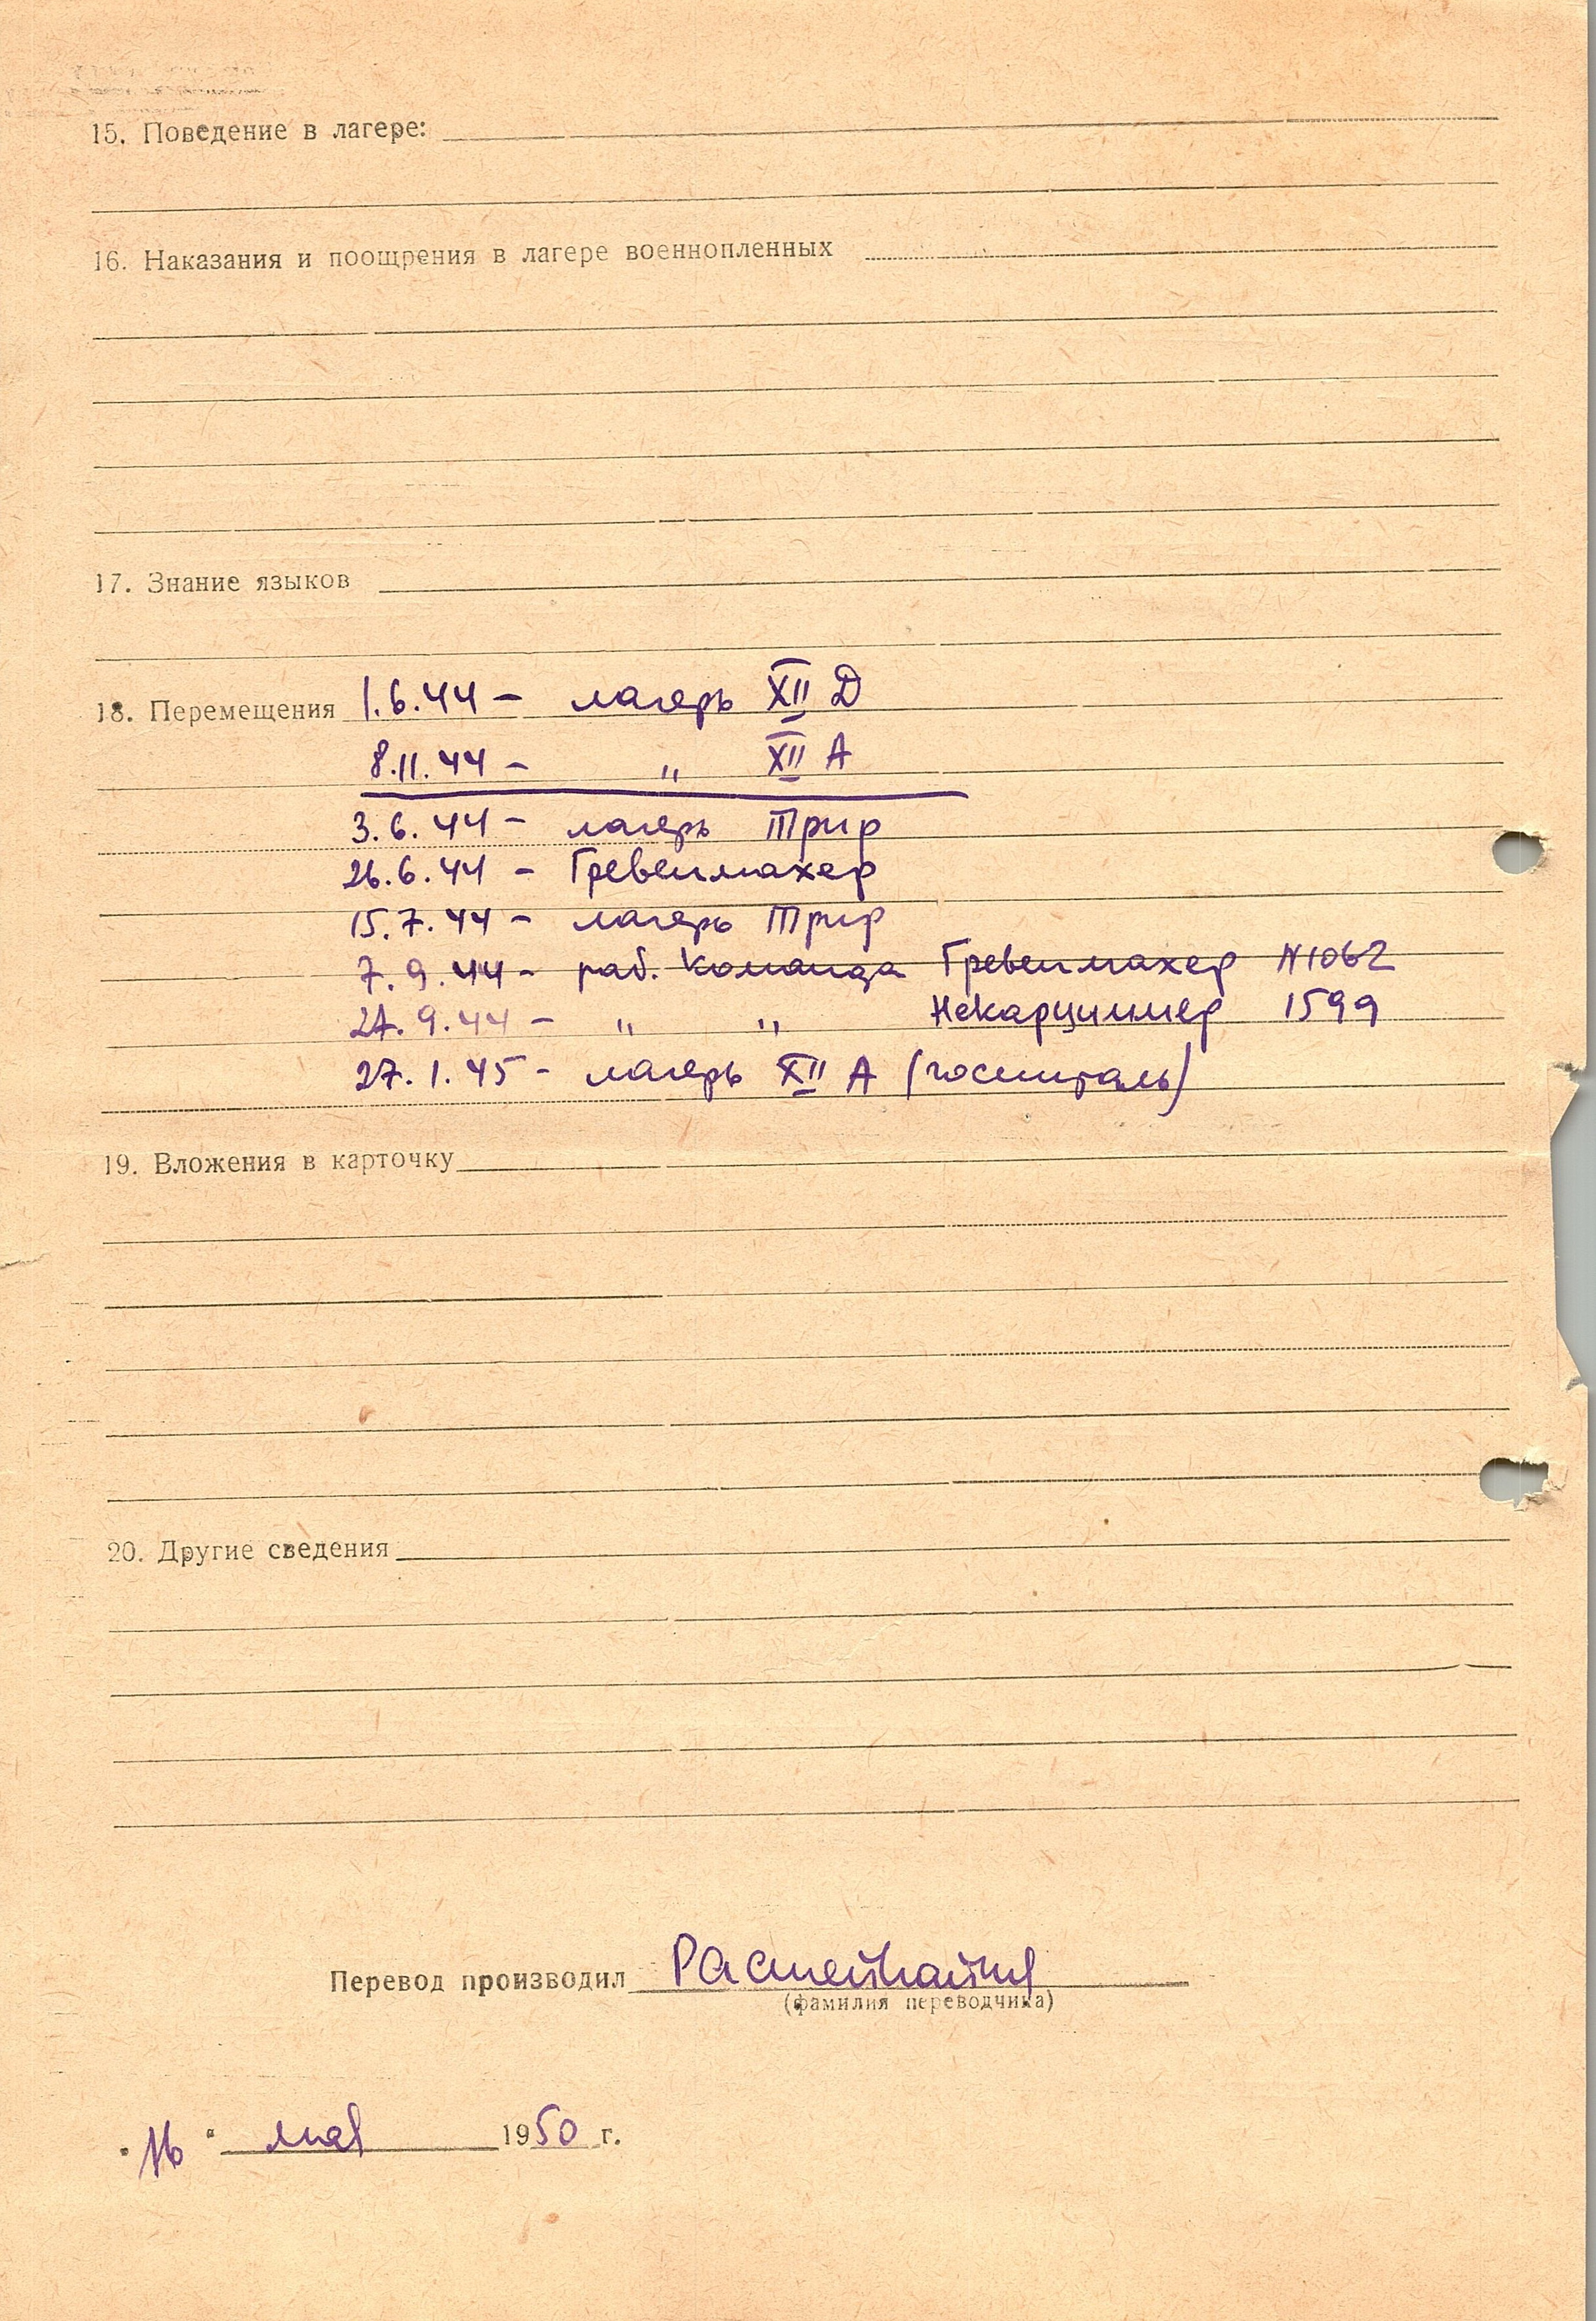 15. Поведение в лагере:
16. Наказания и поощрения в лагере военнопленных
17. Знание языков
18. Перемещения 1.6.44 – лагерь XII Д
8.11.44 – " XII А
3.6.44 – лагерь Трир
26.6.44 – Гревенмахер
15.7.44 – лагерь Трир
7.9.44 – раб. команда Гревенмахер N1062
27.9.44 – " " Некарциммер 1599
27.1.45 – лагерь XII А (госпиталь)
19. Вложения в карточку
20. Другие сведения
Перевод производил
(фамилия переводчика)
"16" мая 1950 г.